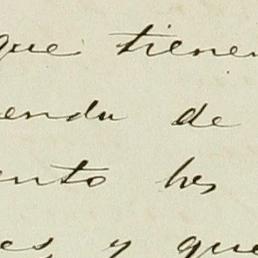 que tienen
enda de
ento hes
es y que